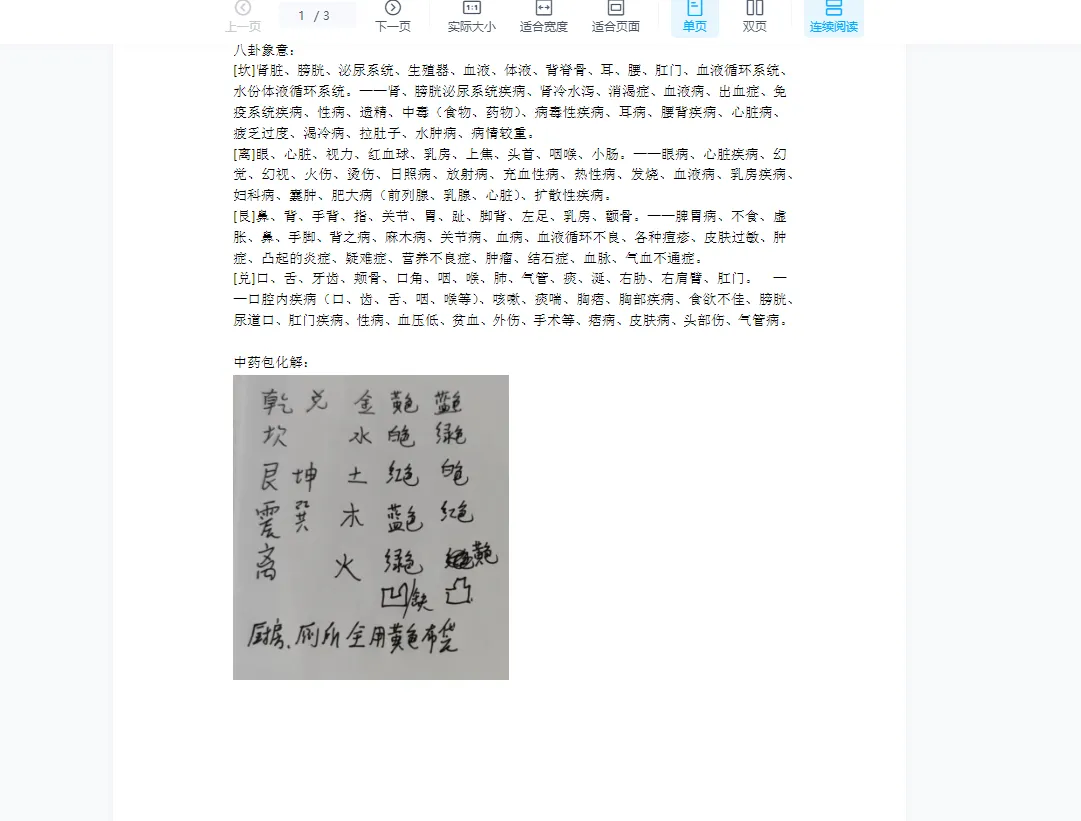 上一页 1 / 3 下一页 实际大小 适合宽度 适合页面 单页 双页 连续阅读
八卦象意：
[坎]肾脏、膀胱、泌尿系统、生殖器、血液、体液、背脊骨、耳、腰、肛门、血液循环系统、
水份体液循环系统。一一肾、膀胱泌尿系统疾病、肾冷水泻、消渴症、血液病、出血症、免
疫系统疾病、性病、遗精、中毒（食物、药物）、病毒性疾病、耳病、腰背疾病、心脏病、
疲乏过度、渴冷病、拉肚子、水肿病、病情较重。
[离]眼、心脏、视力、红血球、乳房、上焦、头首、咽喉、小肠。一一眼病、心脏疾病、幻
觉、幻视、火伤、烫伤、日照病、放射病、充血性病、热性病、发烧、血液病、乳房疾病、
妇科病、囊肿、肥大病（前列腺、乳腺、心脏）、扩散性疾病。
[艮]鼻、背、手背、指、关节、胃、趾、脚背、左足、乳房、颧骨。一一脾胃病、不食、虚
胀、鼻、手脚、背之病、麻木病、关节病、血病、血液循环不良、各种痘疹、皮肤过敏、肿
症、凸起的炎症、疑难症、营养不良症、肿瘤、结石症、血脉、气血不通症。
[兑]口、舌、牙齿、颊骨、口角、咽、喉、肺、气管、痰、涎、右胁、右肩臂、肛门。 一
一口腔内疾病（口、齿、舌、咽、喉等）、咳嗽、痰喘、胸痞、胸部疾病、食欲不佳、膀胱、
尿道口、肛门疾病、性病、血压低、贫血、外伤、手术等、痞病、皮肤病、头部伤、气管病。
中药包化解：
乾 兑 金 黄色 蓝色
坎 水 白色 绿色
艮 坤 土 红色 白色
震 巽 木 蓝色 红色
离 火 绿色 黄色
凹/缺 凸
厨房、厕所全用黄色布袋